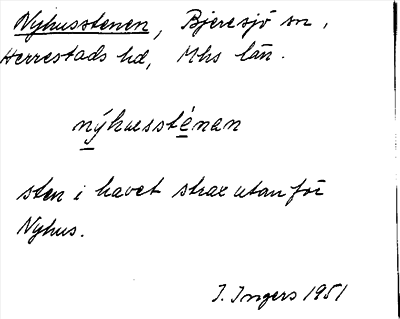 Nyhusstenen, Bjeresjö sn,
Herrestads hd, Mhs län.
nýhussténan
sten i havet strax utanför
Nyhus.
I. Ingers 1951